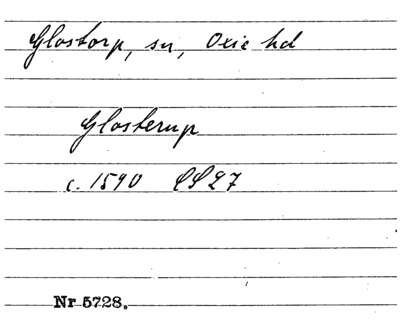 Glostorp, sn, Oxie hd
Glosterup
c. 1590 LL27
Nr 5728.